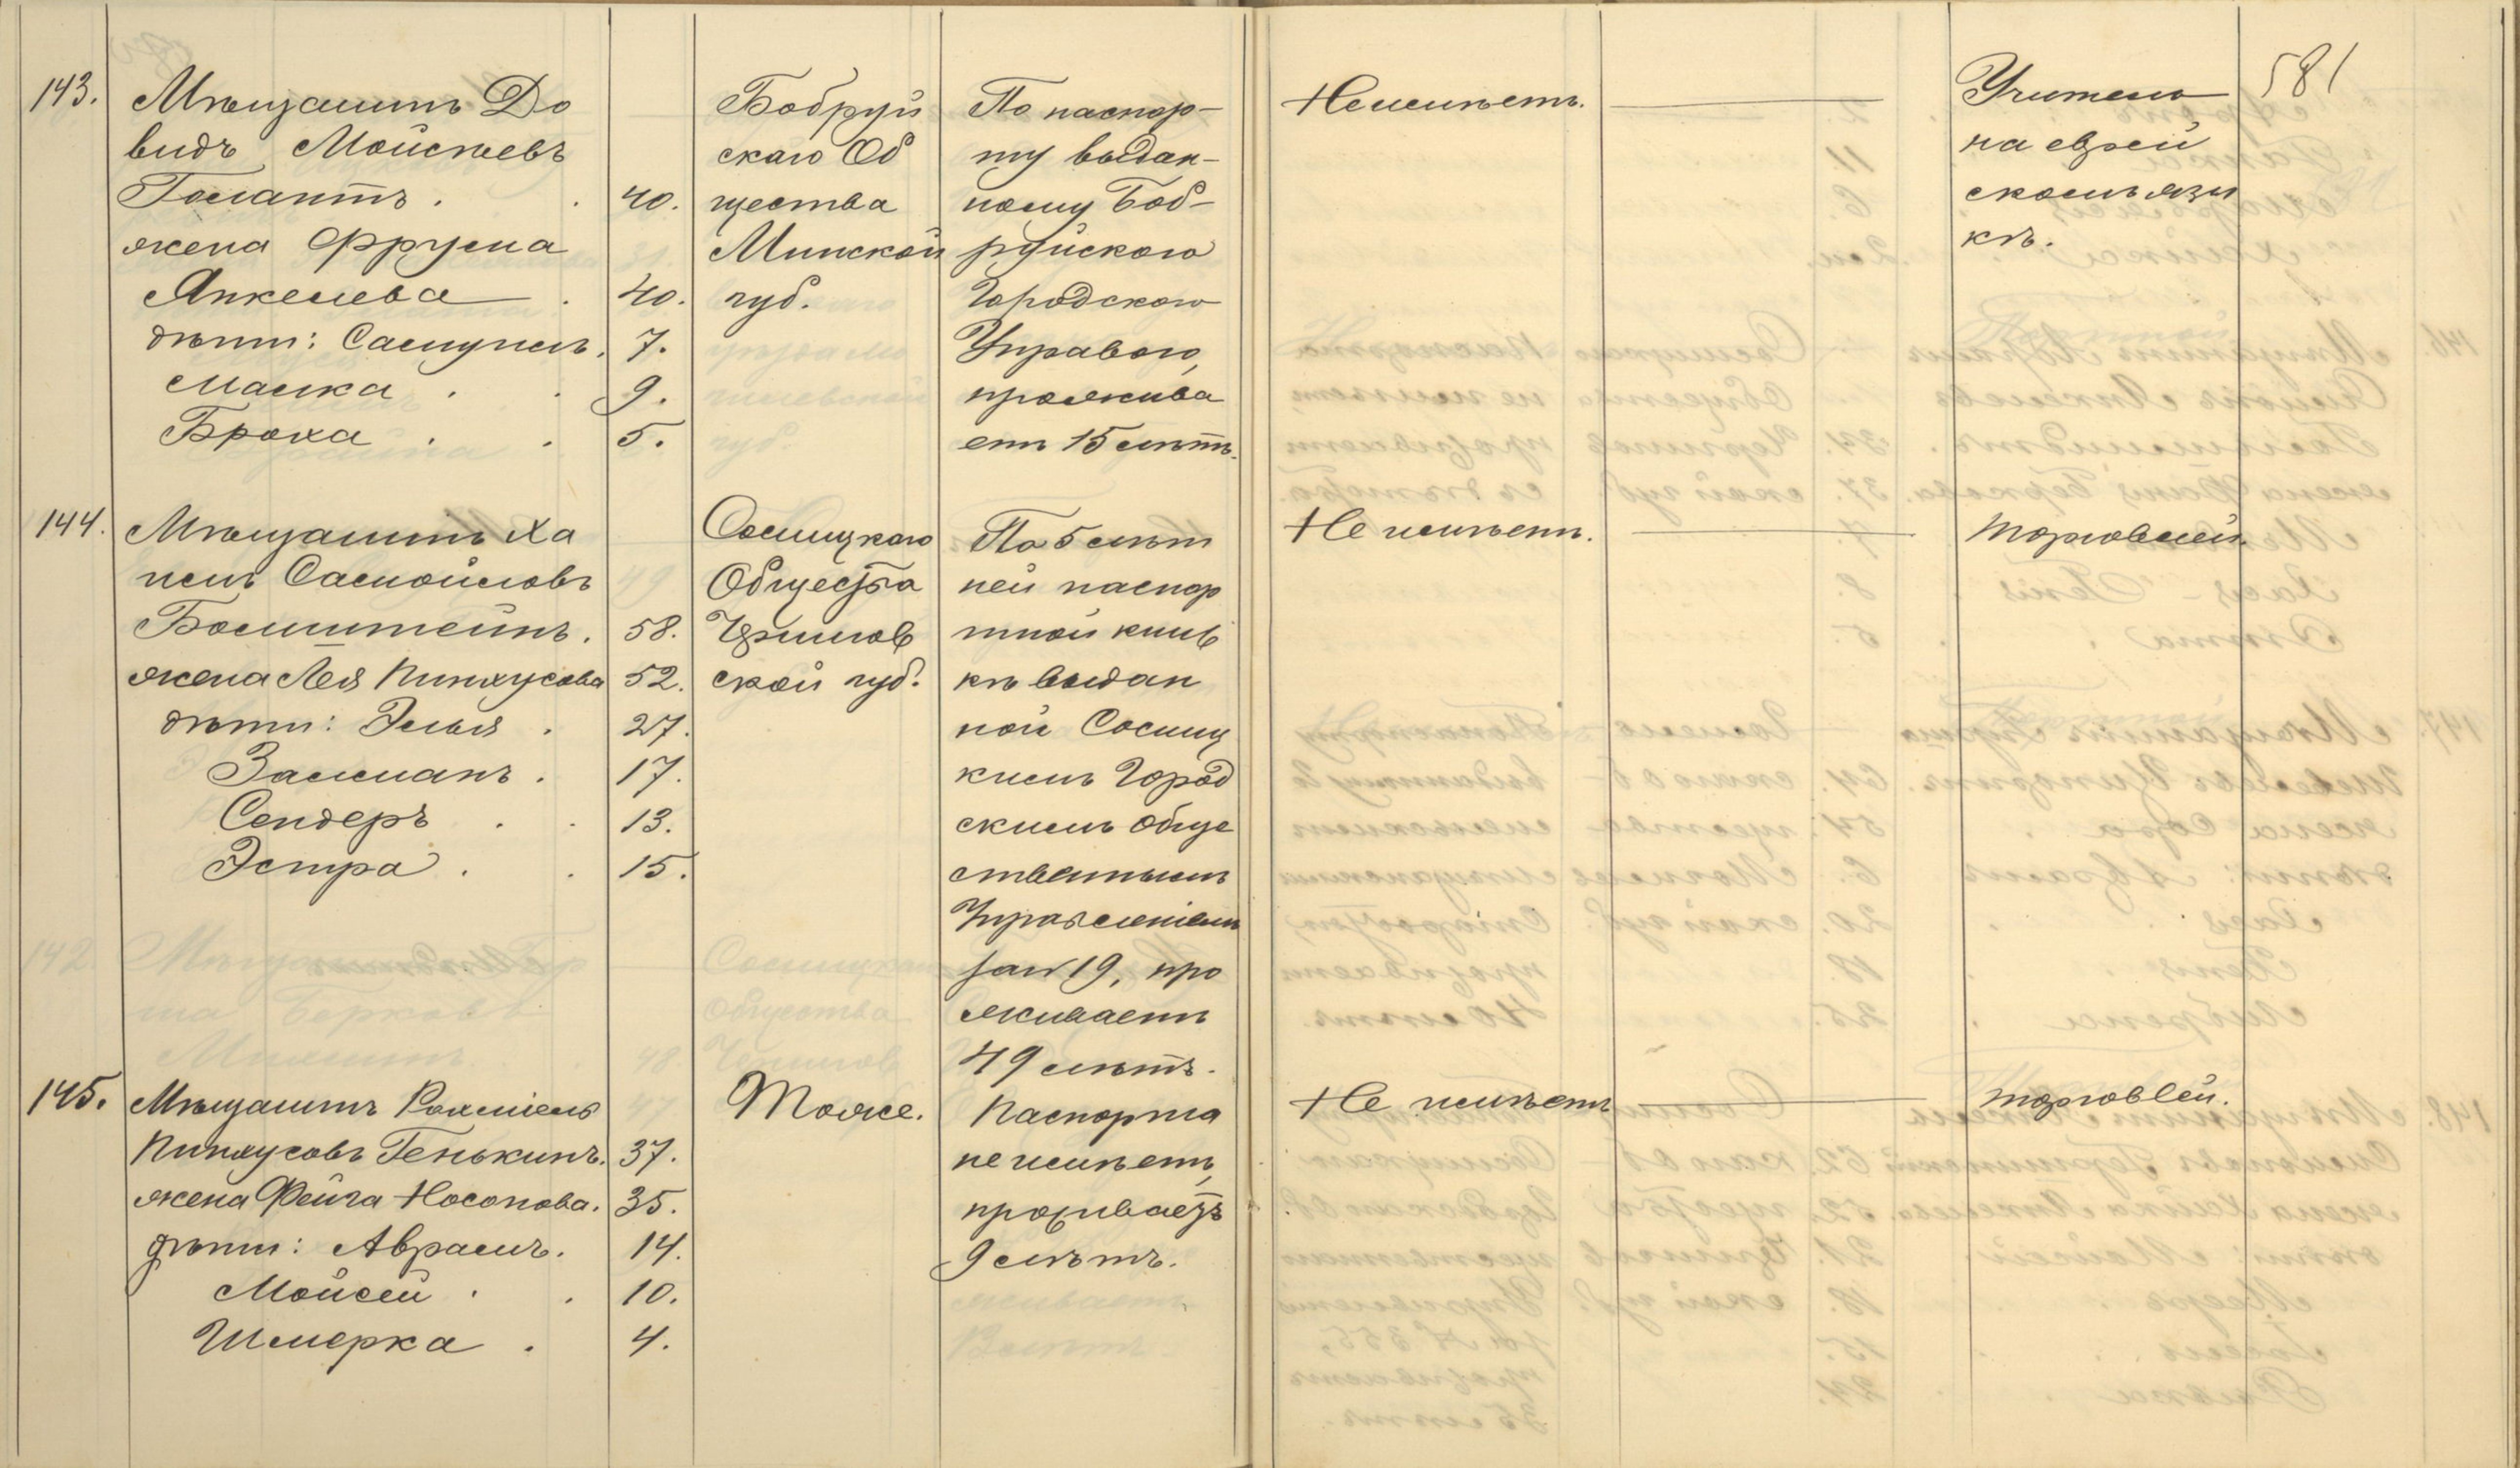 581
143.
Мѣщанинъ До
видъ Мойсѣевъ
Голантъ . . 40.
жена Фрума
Янкелева . 40.
дѣти: Самуилъ. 7.
Малка . . 9.
Броха . . 5.
Бобруй
скаго Об
щества
Минской
губ.
По паспор-
ту выдан-
ному Боб-
руйскою
Городскою
Управою,
прожива
етъ 15 лѣтъ.
Неимѣетъ.
Учитель
на еврей
скомъ язы
кѣ.
144.
Мѣщанинъ Ха
немъ Самойловъ
Больштейнъ. 58.
жена Лея Пинхусова 52.
дѣти: Элья . 27.
Залманъ . 17.
Сендеръ . . 13.
Эстра . . 15.
Сосницкаго
Общества
Чернигов
ской губ.
По 5 лѣт
ней паспор
тной книж
кѣ выдан
ной Сосниц
кимъ Город
скимъ Обще
ственнымъ
Управленіемъ
за № 19, про
живаетъ
49 лѣтъ.
Не имѣетъ.
торговлей.
145.
Мѣщанинъ Рахміель
Пинхусовъ Генькинъ. 37.
жена Фейга Носонова. 35.
дѣти: Аврамъ. 14.
Мойсей . . 10.
Шмерка . 4.
Тоже.
Паспорта
не имѣетъ,
проживаетъ
9 лѣтъ.
Не имѣетъ
торговлей.